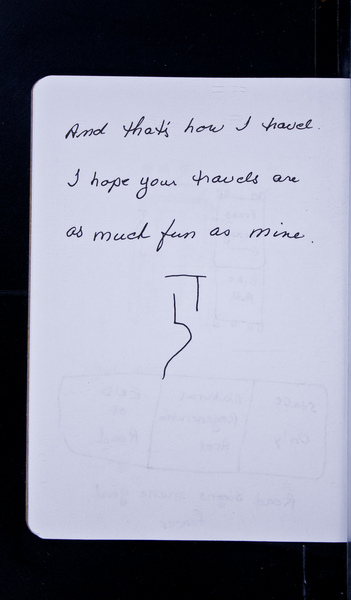 And that's how I travel.
I hope your travels are
as much fun as mine.